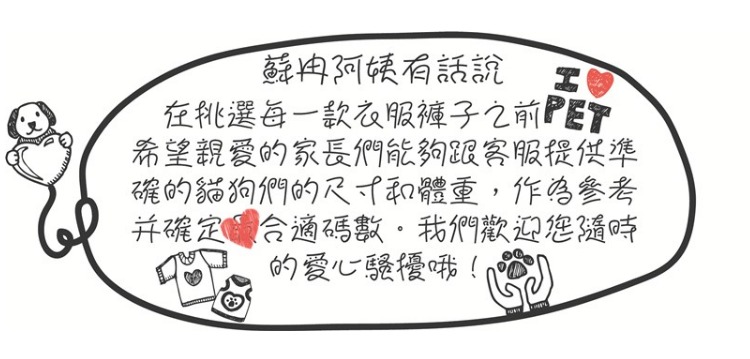 蘇冉阿姨有話說
I
PET
在挑選每一款衣服褲子之前
希望親愛的家長們能夠跟客服提供準
確的貓狗們的尺寸和體重，作為參考
并確定合適碼數。我們歡迎您隨時
的愛心騷擾哦！